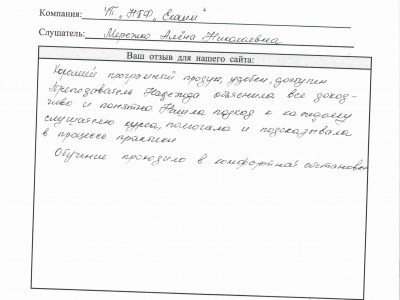 Компания: УП „НПФ „Скаин"
Слушатель: Мережко Алёна Николаевна
Ваш отзыв для нашего сайта:
Хороший програмный продук, удобен, доступен
Преподаватель Надежда объяснила все доход-
чиво и понятно Нашла подход к каждому
слушателю курса, помогала и подсказывала
в процессе практики
Обучение проходило в комфортной обстановке